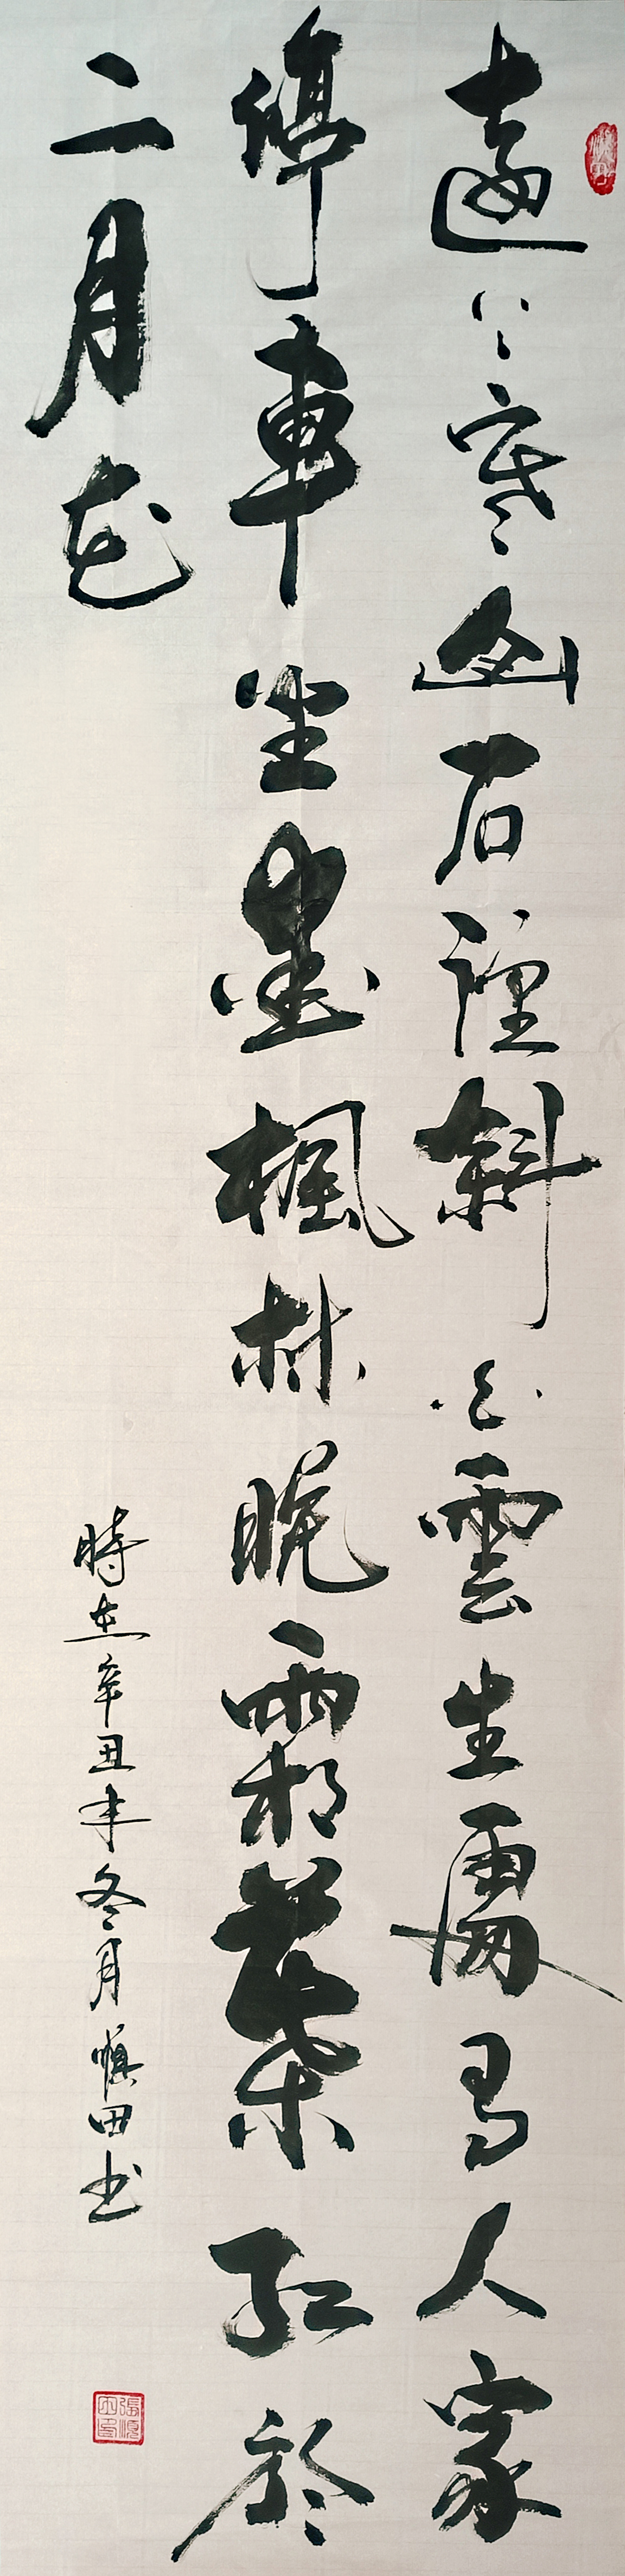 遠上寒山石徑斜白雲生處有人家
停車坐愛楓林晚霜葉紅於
二月花
時在辛丑年冬月慎田書
張慎田印